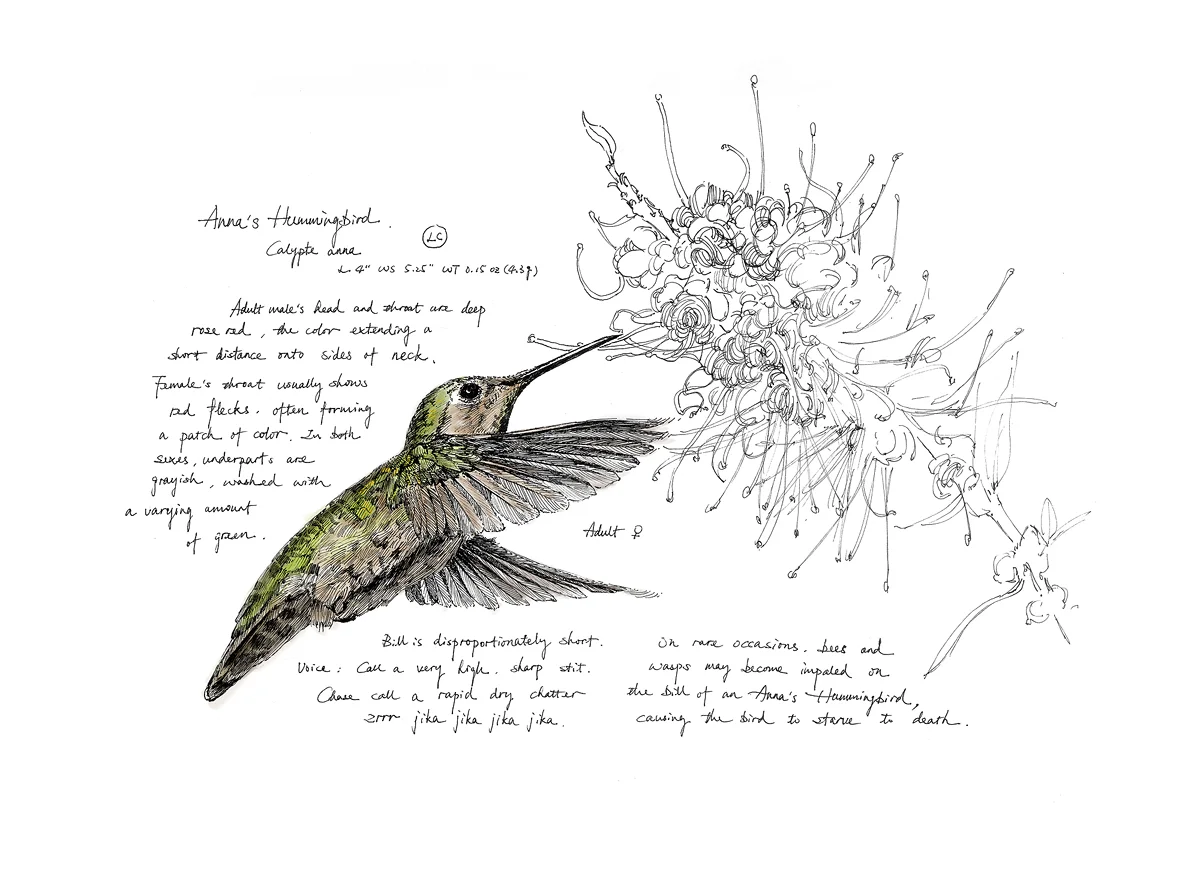 Anna's Hummingbird.
Calypte anna
LC
L 4" WS 5.25" WT 0.15 oz (4.3g)
Adult male's head and throat are deep
rose red, the color extending a
short distance onto sides of neck.
Female's throat usually shows
red flecks. often forming
a patch of color. In both
sexes, underparts are
grayish, washed with
a varying amount
of green.
Adult ♀
Bill is disproportionately short.
Voice: Call a very high. sharp stit.
Chase call a rapid dry chatter
zrrr jika jika jika jika.
in rare occasions. bees and
wasps may become impaled on
the bill of an Anna's Hummingbird,
causing the bird to starve to death.